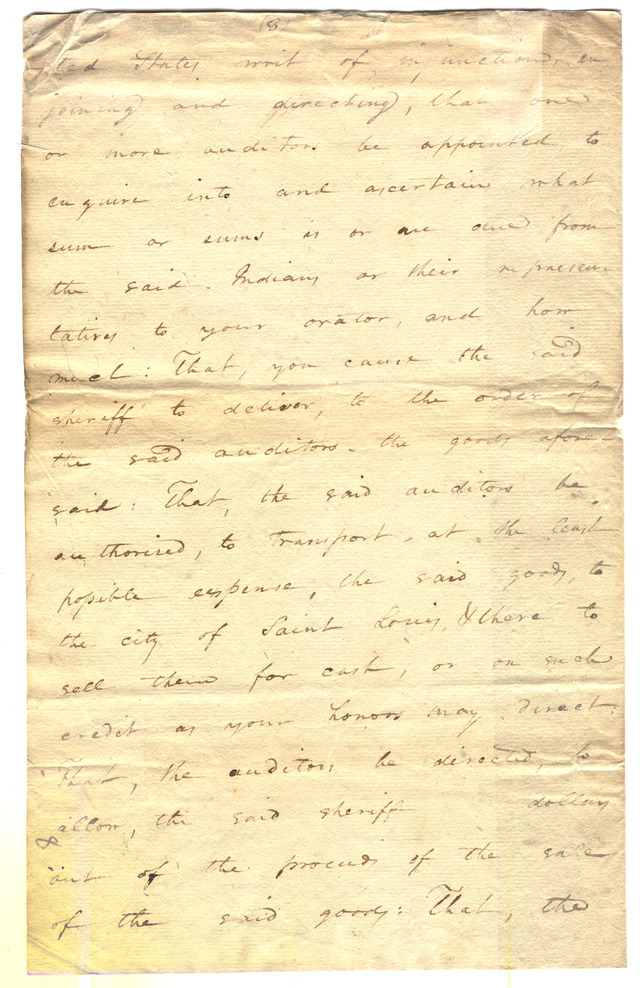 (8)
ted States writ of injunction, en
joining and directing, that one
or more auditors be appointed to
enquire into and ascertain what
sum or sums is or are due from
the said Indians or their represen-
tatives to your orator, and how
much: That, you cause the said
sheriff to deliver, to the order of
the said auditors the goods afore-
said: That, the said auditors be
authorised, to transport, at the least
possible expense, the said goods, to
the city of Saint Louis, & there to
sell them for cash, or on such
credit as your honors may direct:
That, the auditors be directed, to
allow, the said sheriff dollars
& out of the proceeds of the sale
of the said goods: That, the